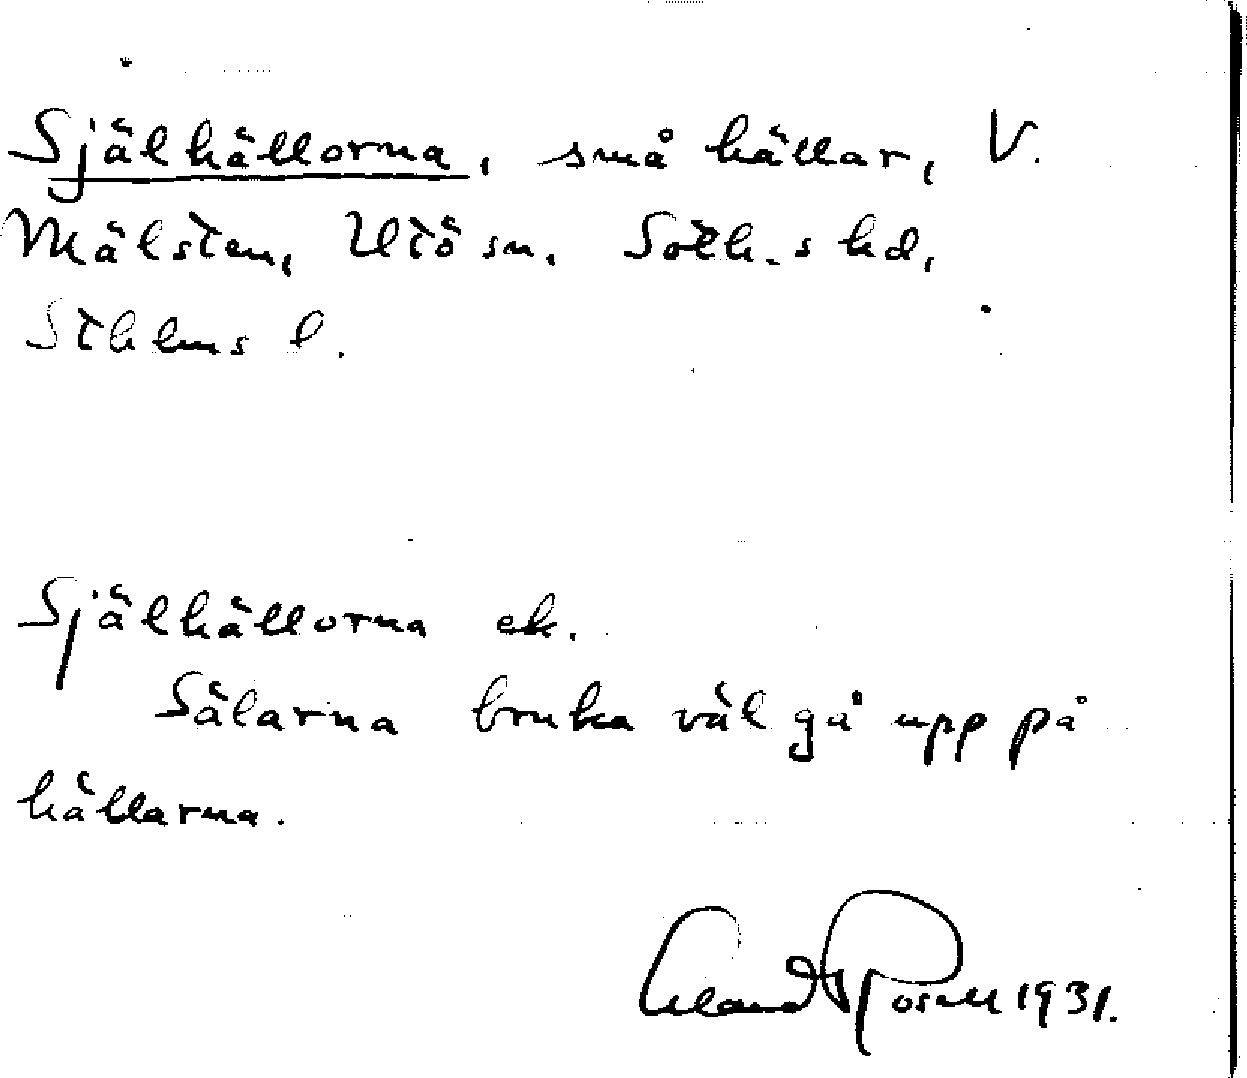 Själhällorna, små hällar, V.
Mälsten, Utö sn. Soth.s hd,
Sthlms l.
Själhällorna ek.
Sälarna bruka väl gå upp på
hällarna.
Erland Rosell 1931.